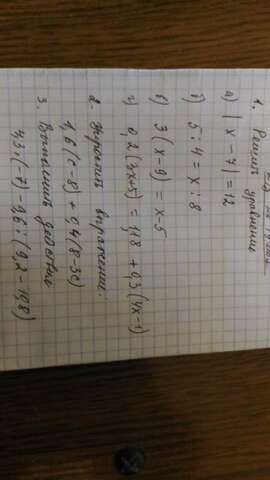 1. Решить уравнение
а) |x - 7| = 12
б) 5 : 4 = x : 8
в) 3(x - 9) = x - 5
г) 0,2(3x+5) = 1,8 + 0,3(4x-1)
2. Упростить выражение.
1,6(c-8) + 0,4(8-3c)
3. Вычислить
4,3·(-7) - 9,6 : (9,2 - 10,8)